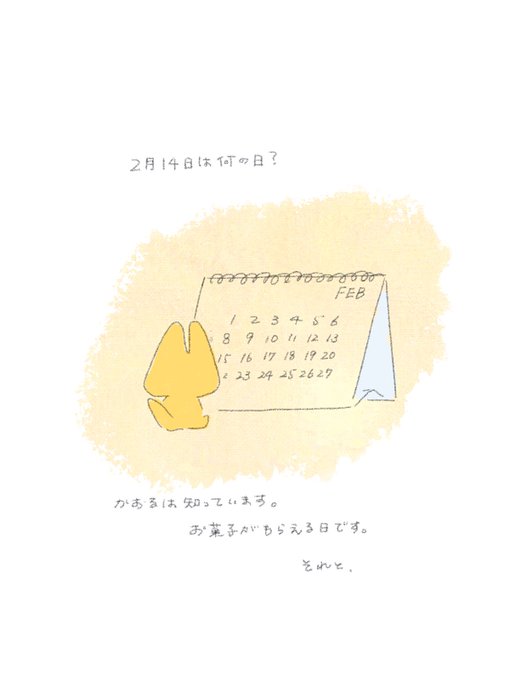 2月14日は何の日?
FEB
1 2 3 4 5 6
8 9 10 11 12 13
15 16 17 18 19 20
2 23 24 25 26 27
かおるは知っています。
お菓子がもらえる日です。
それと、